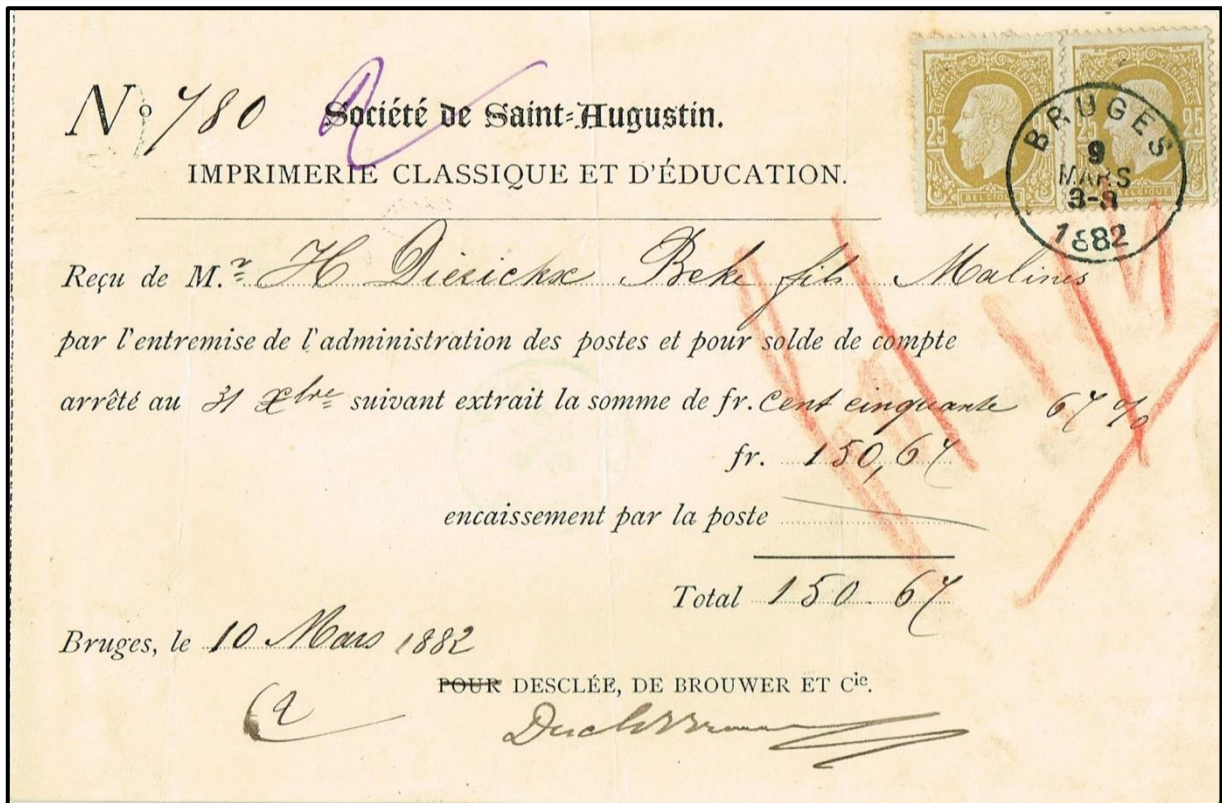 Nº 780 Société de Saint-Augustin.
IMPRIMERIE CLASSIQUE ET D'ÉDUCATION.
25 25
BELGIQUE
25 25
BELGIQUE
BRUGES
9
MARS
1882
Reçu de M.r H Diérickx Beke fils Malines
par l'entremise de l'administration des postes et pour solde de compte
arrêté au 31 Xbre suivant extrait la somme de fr. Cent cinquante 67 %
fr. 150,67
encaissement par la poste
Total 150.67
Bruges, le 10 Mars 1882
POUR DESCLÉE, DE BROUWER ET Cie.